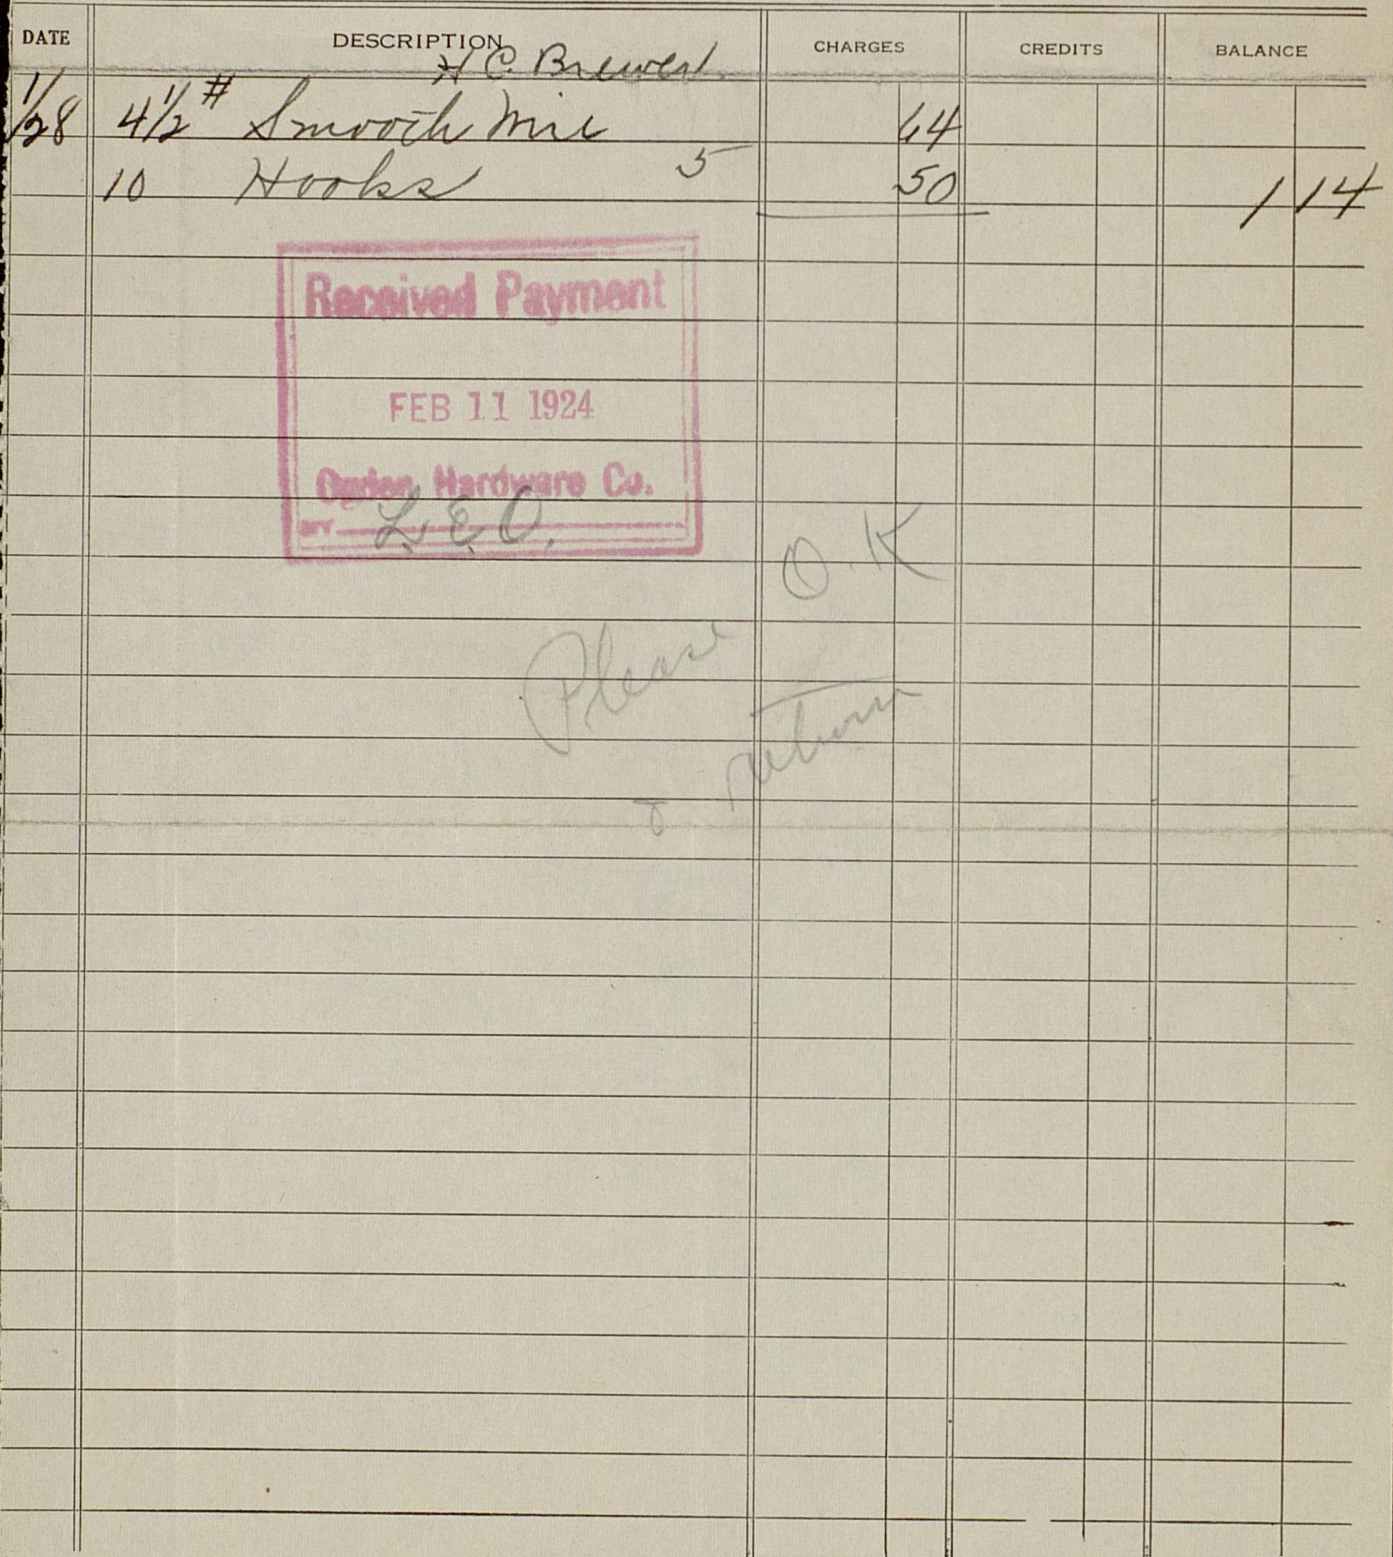 DATE DESCRIPTION CHARGES CREDITS BALANCE
H C. Brewer
1/28 4 1/2 # Smooth Wire 64
10 Hooks 5 50 1 14
Received Payment
FEB 11 1924
Ogden Hardware Co.
BY L. E. O.
O. K
Please
& return